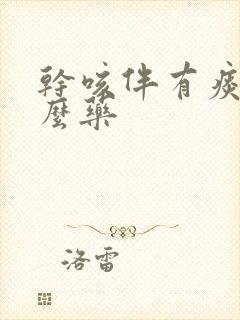 幹咳伴有痰
麼藥
洛雷